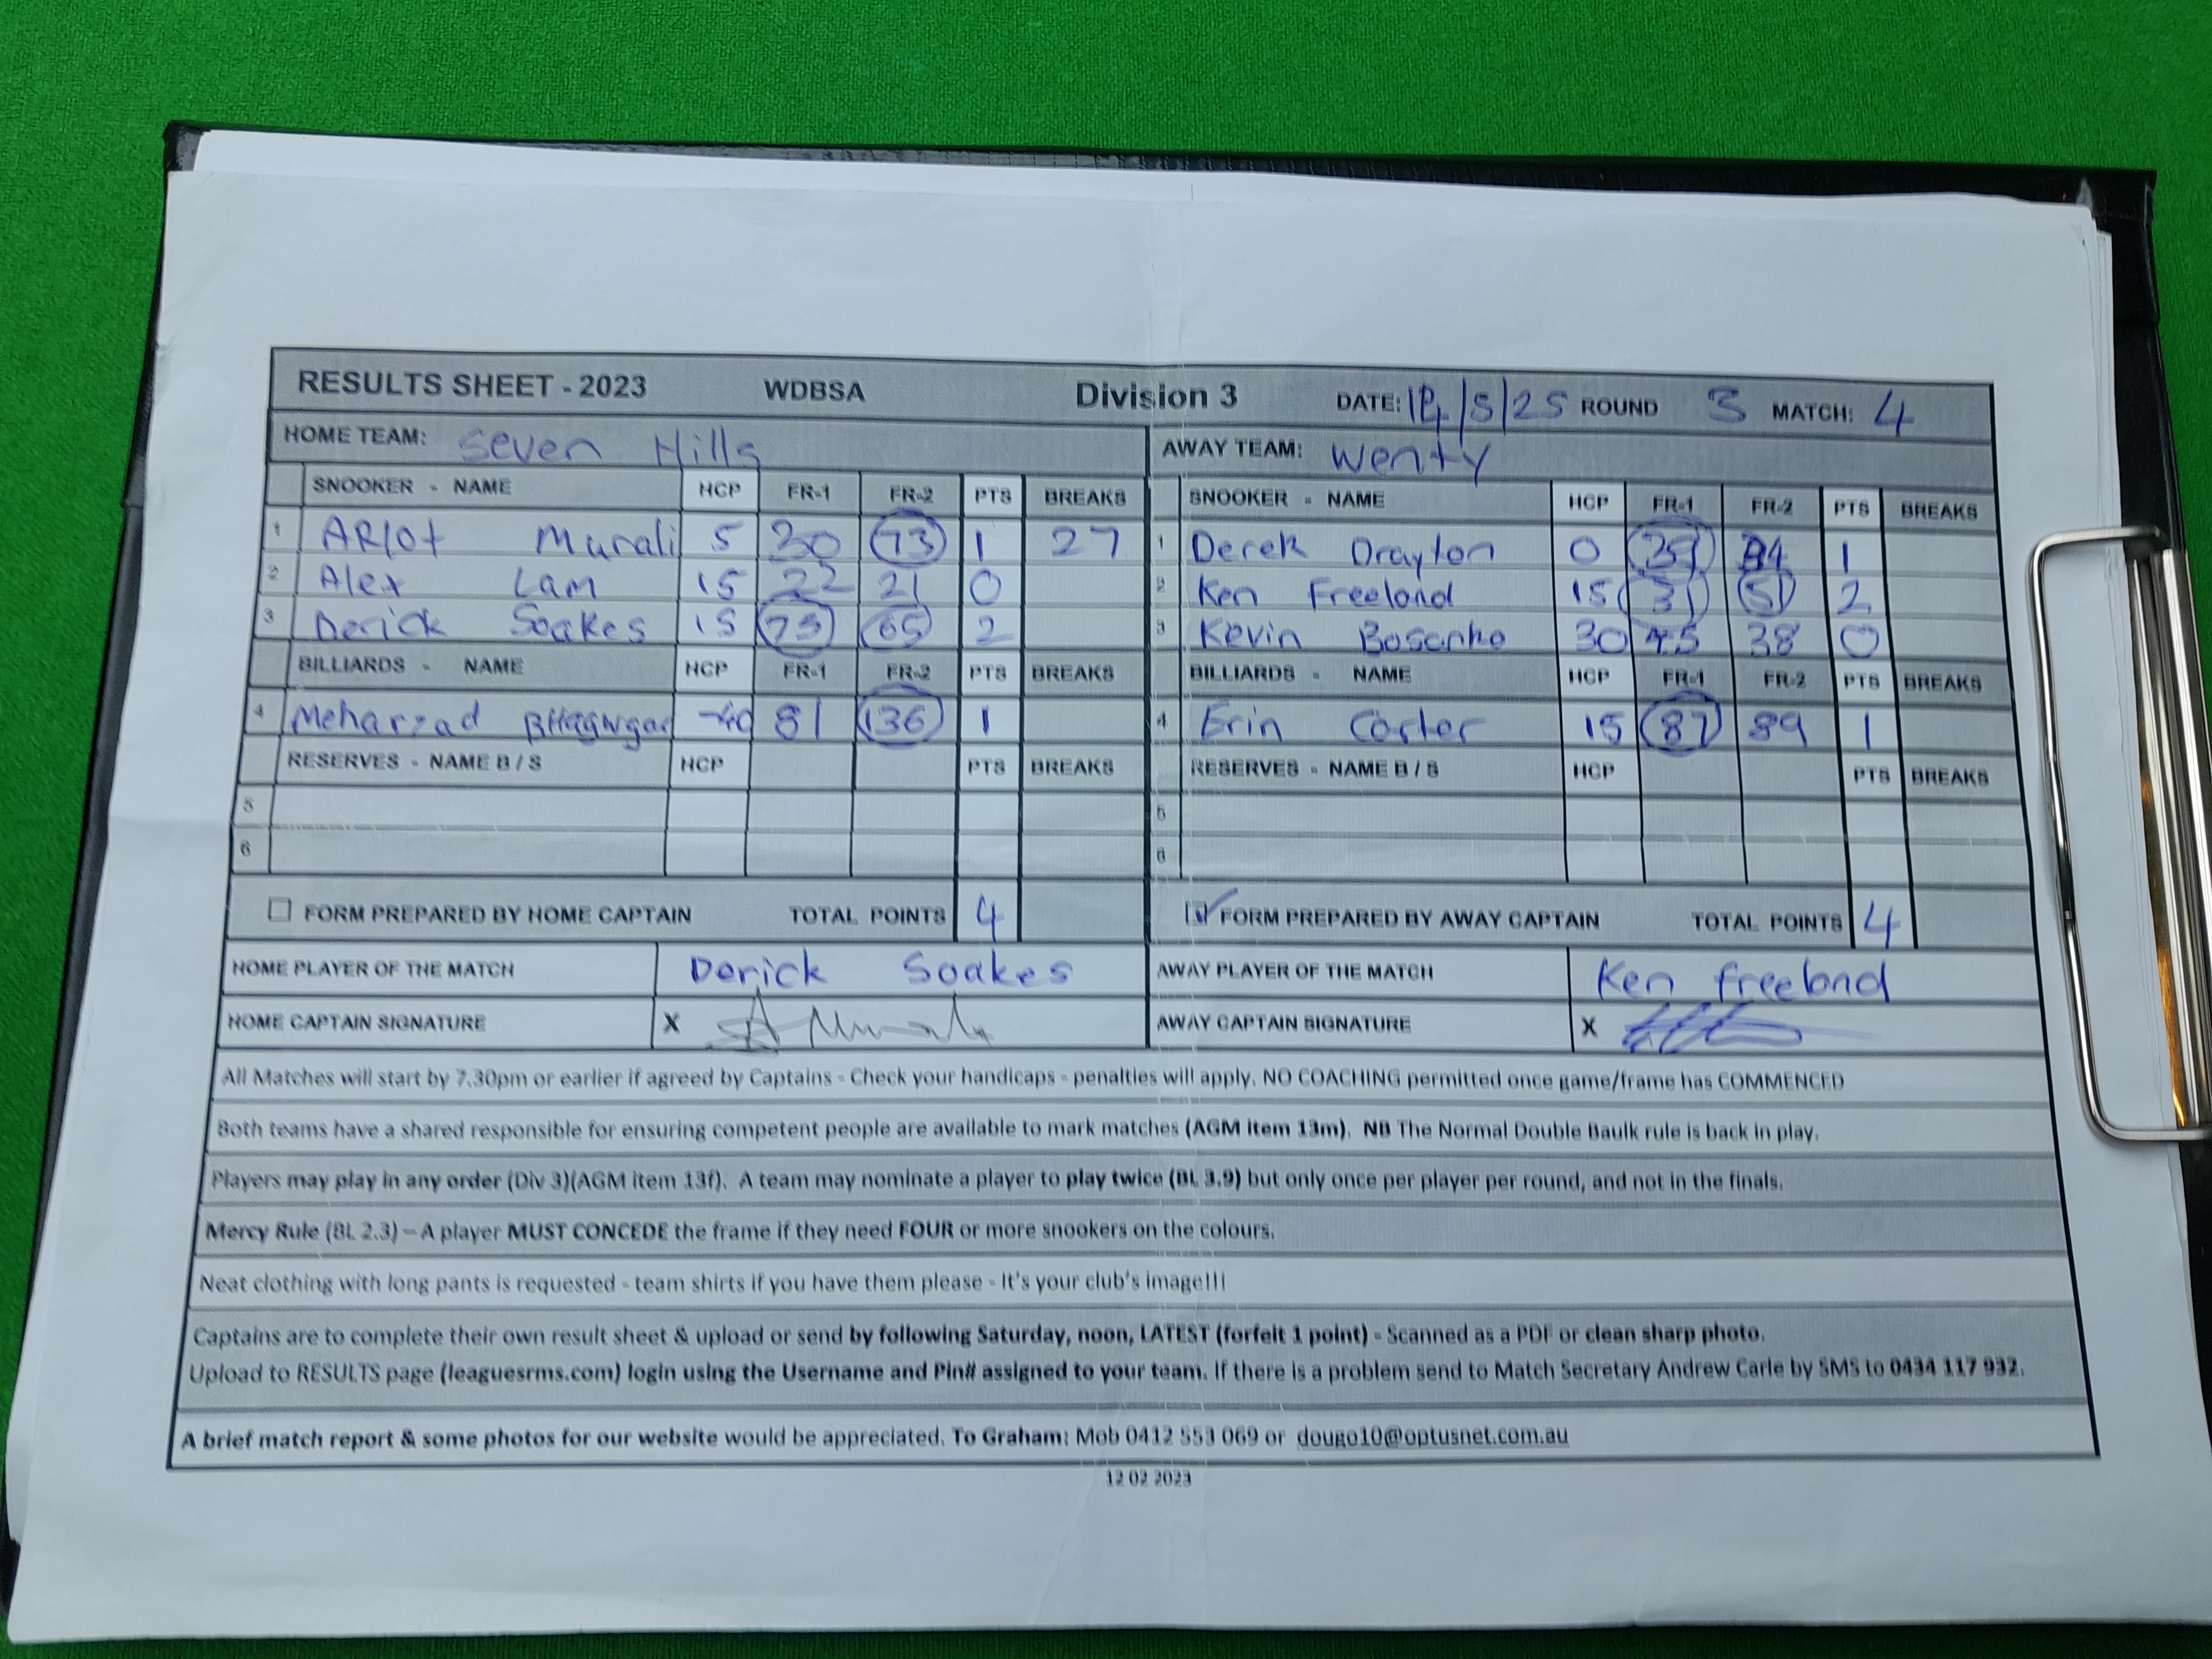 RESULTS SHEET - 2023 WDBSA Division 3 DATE: 14/5/25 ROUND 3 MATCH: 4
HOME TEAM: Seven Hills AWAY TEAM: Wenty
SNOOKER - NAME HCP FR-1 FR-2 PTS BREAKS SNOOKER - NAME HCP FR-1 FR-2 PTS BREAKS
1 ARlot Murali 5 30 73 1 27 1 Derek Drayton 0 39 1
2 Alex Lam 15 22 21 0 2 Ken Freelond 15 31 51 2
3 Derick Soakes 15 75 65 2 3 Kevin Bosanko 30 45 38 0
BILLIARDS - NAME HCP FR-1 FR-2 PTS BREAKS BILLIARDS - NAME HCP FR-1 FR-2 PTS BREAKS
4 Meharzad -40 81 136 1 4 Erin Carter 15 87 89 1
RESERVES - NAME B / S HCP PTS BREAKS RESERVES - NAME B / S HCP PTS BREAKS
5 5
6 6
FORM PREPARED BY HOME CAPTAIN TOTAL POINTS 4 FORM PREPARED BY AWAY CAPTAIN TOTAL POINTS 4
HOME PLAYER OF THE MATCH Derick Soakes AWAY PLAYER OF THE MATCH Ken freelond
HOME CAPTAIN SIGNATURE X AWAY CAPTAIN SIGNATURE X
All Matches will start by 7.30pm or earlier if agreed by Captains - Check your handicaps - penalties will apply. NO COACHING permitted once game/frame has COMMENCED
Both teams have a shared responsible for ensuring competent people are available to mark matches (AGM item 13m). NB The Normal Double Baulk rule is back in play.
Players may play in any order (Div 3)(AGM item 13f). A team may nominate a player to play twice (BL 3.9) but only once per player per round, and not in the finals.
Mercy Rule (BL 2.3) – A player MUST CONCEDE the frame if they need FOUR or more snookers on the colours.
Neat clothing with long pants is requested - team shirts if you have them please - It's your club's image!!!
Captains are to complete their own result sheet & upload or send by following Saturday, noon, LATEST (forfeit 1 point) - Scanned as a PDF or clean sharp photo.
Upload to RESULTS page (leaguesrms.com) login using the Username and Pin# assigned to your team. If there is a problem send to Match Secretary Andrew Carle by SMS to 0434 117 932.
A brief match report & some photos for our website would be appreciated. To Graham: Mob 0412 553 069 or dougo10@optusnet.com.au
12 02 2023